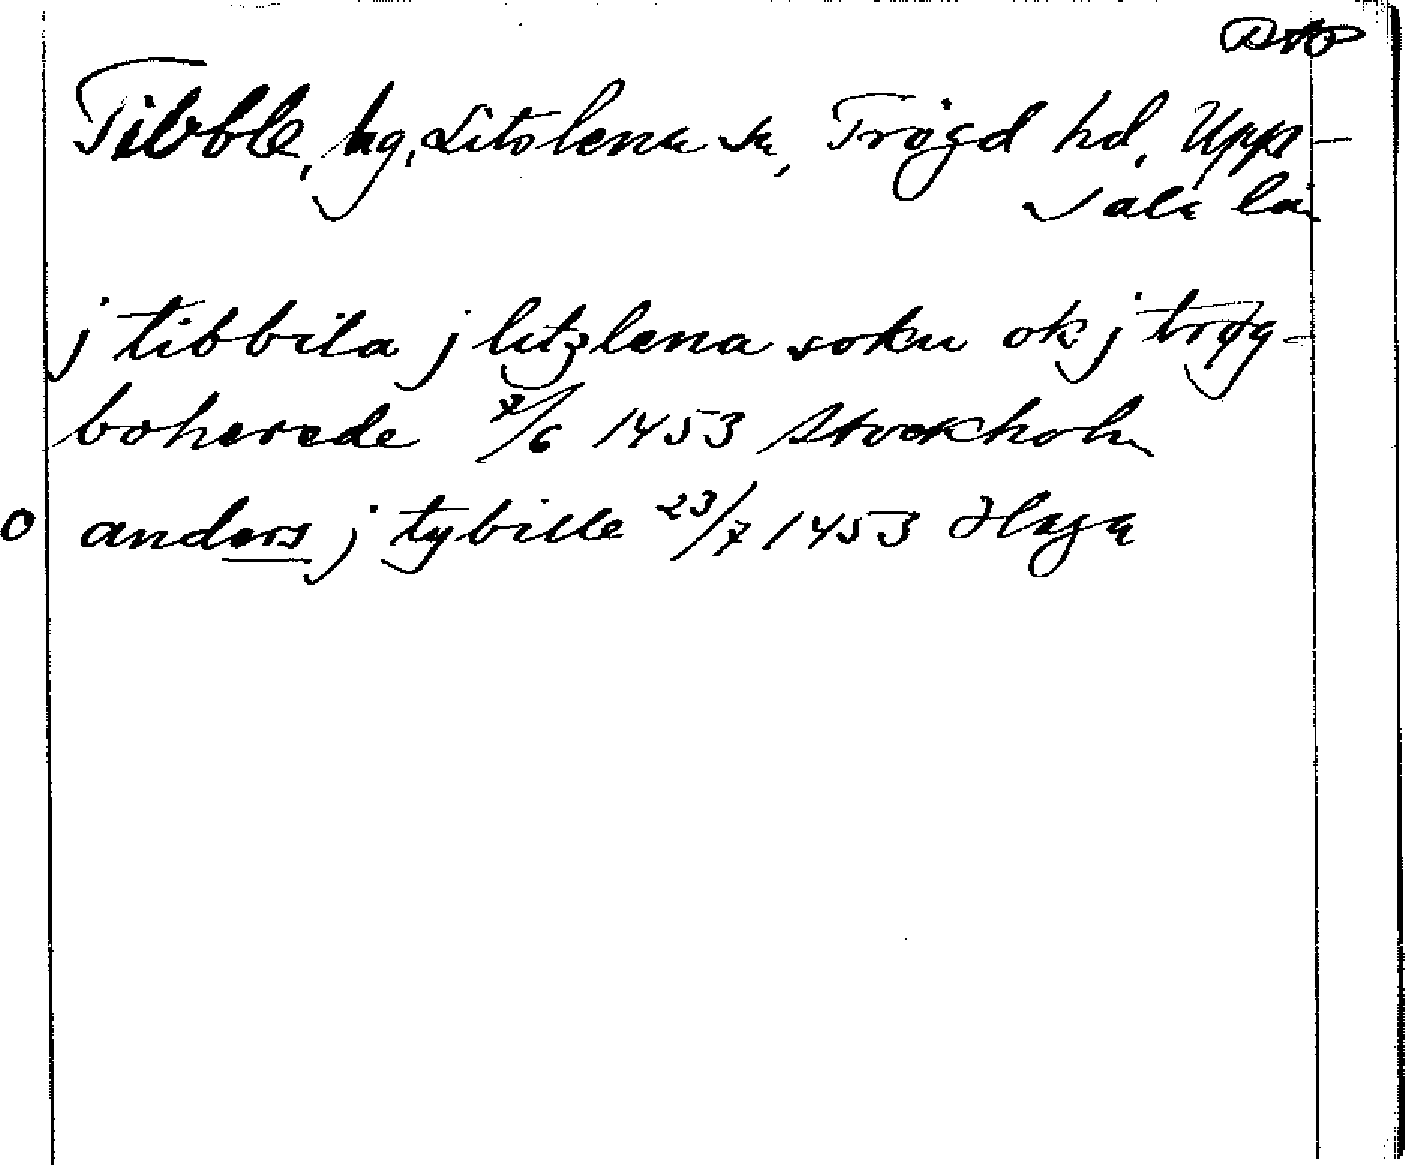 Tibble, hg, Litslena sn, Trögd hd, Upp-
sala län
j tibbila j litzlena sokn ok j trøg-
boherede 7/6 1453 Stockholm
o anders j tybille 23/7 1453 Haga